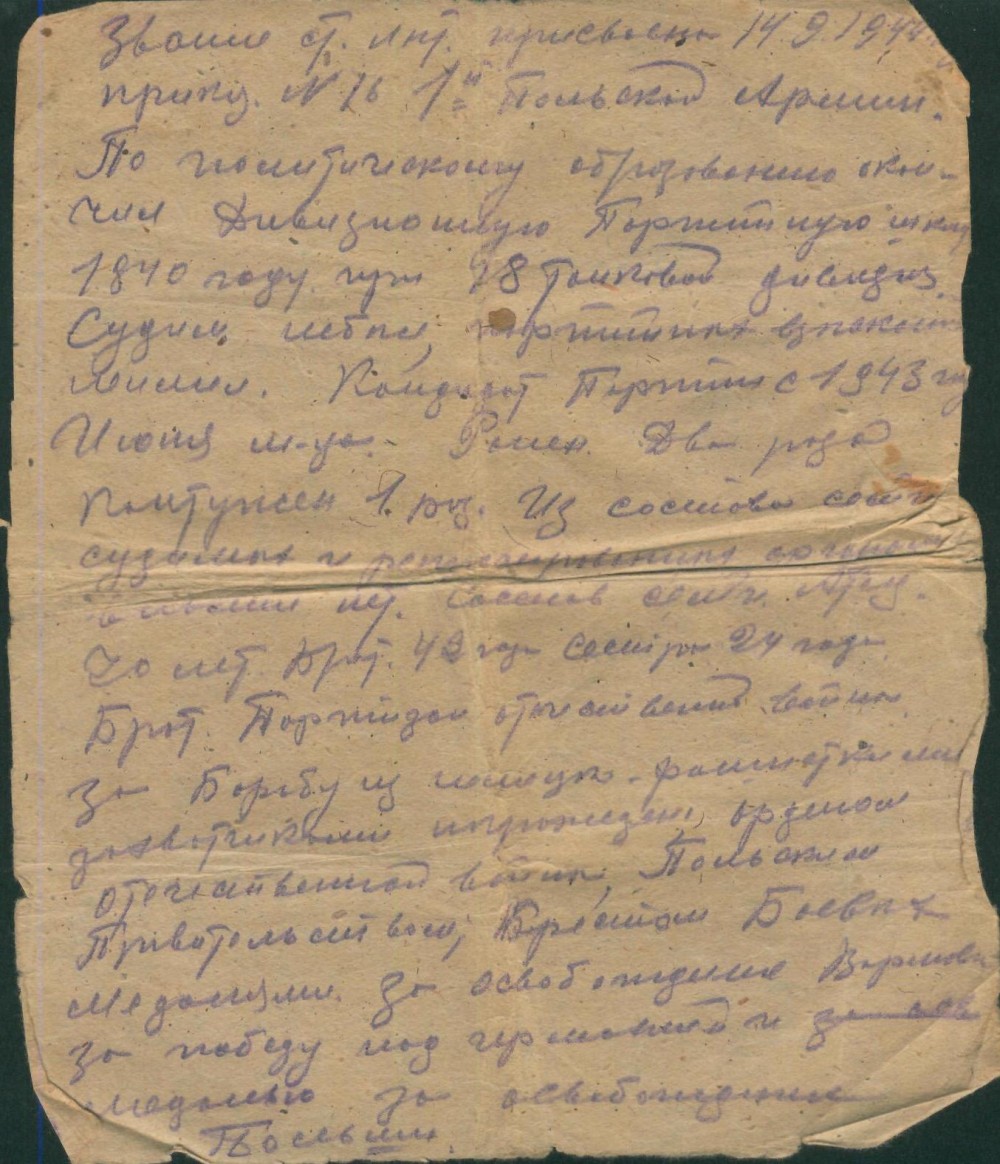 Звание ст. лнт. присвоено 14 9. 1944
приказ. N 76 1й Польской Армии.
По политическому образованию окон-
чил Дивизионную Партийную школу
1840 году при 18 танковой дивизии.
Судим небыл, партийных взысканий
неимел. Кандидат Партии с 1943 год
Июня м-ца. Ранен Два раза
Контужен 1. раз. Из состава семьи
судимых и репрессированных
нет. Состав семьи
70 лет Брат. 42 года сестра 24 года
Брат. Партизан отечественой войны
За Борьбу из немецко-фашистскими
захватчиками награжден, орденом
отечественной войны, Польским
Правательством, Крестом Боевых
медалями. За освобождение Варшавы
за победу над германией и за осв
медалью за освобождение
Польши.